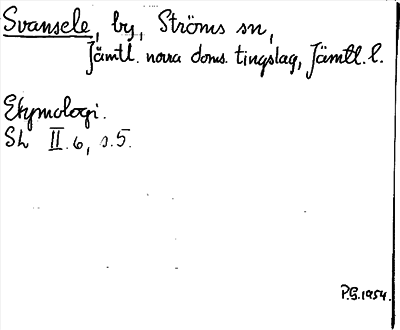 Svansele, by, Ströms sn,
Jämtl. norra doms. tingslag, Jämtl. l.
Etymologi.
SL II.6, s.5.
P.G.1954.